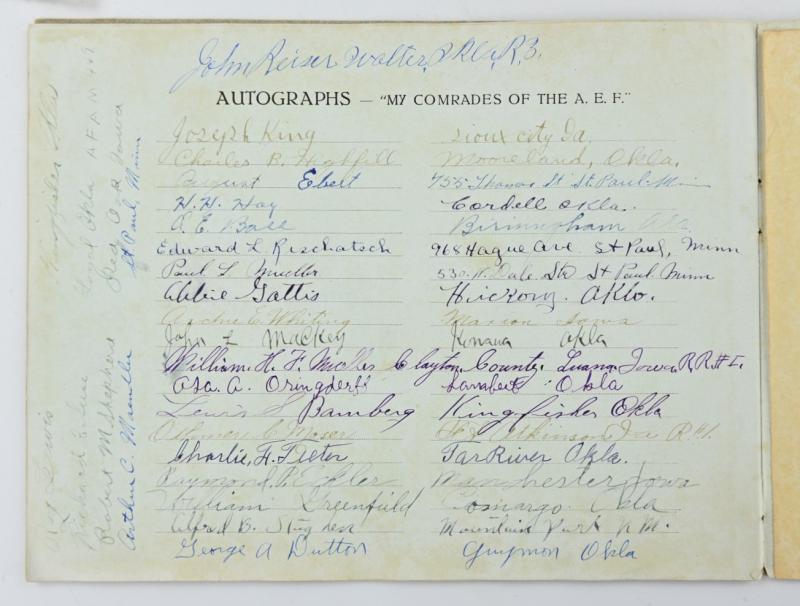 John Reiser Walter, Okla, R.3.
AUTOGRAPHS — "MY COMRADES OF THE A. E. F."
Joseph King Sioux City Ia.
Charles P. Hatfill Mooreland, Okla.
August Ebert 755 Thomas St St. Paul. Minn
H. H. Hay Cordell Okla.
O. E. Ball Birmingham Ala.
Edward L Rischatsch 968 Hague Ave St Paul, Minn
Paul L Mueller 530. N. Dale Str St Paul Minn
Abbie Gattis Hickory. Oklo.
Archie E. Whiting Marion Iowa
John L Mackey Okla
William. H. F. Clayton County. Luana. Iowa R R # 1.
Asa. A. Oringderff Lambert Okla
Lewis S Bamberg Kingfisher Okla
C. Moser Atkinson R. #1.
Charlie, H. Teeter Tar River Okla.
Raymond P. Manchester Iowa
William Greenfield Camargo. Okla
Alfred B. Mountain Park N.M.
George A Dutton Guymon Okla
Lewis Kingfisher Okla
Richard Loyal Okla
Robert M Shepherd Red Oak Iowa
Arthur C. Mueller St Paul, Minn